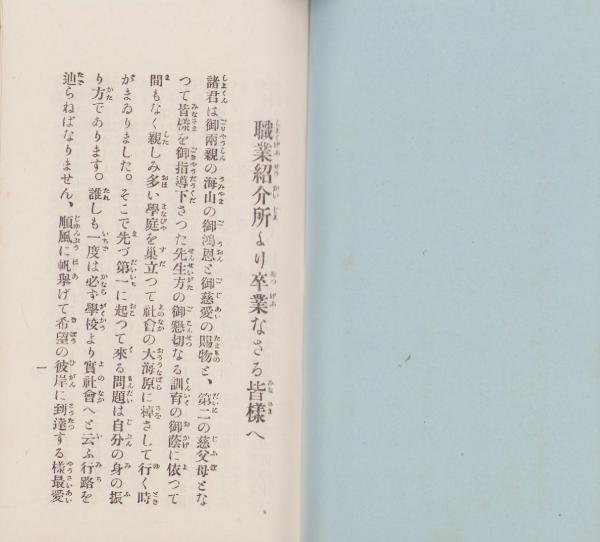 職業紹介所より卒業なさる皆樣へ
諸君は御兩親の海山の御鴻恩と御慈愛の賜物と、第二の慈父母とな
つて皆樣を御指導下さつた先生方の御懇切なる訓育の御蔭に依つて
間もなく親しみ多い學庭を巢立つて社會の大海原に棹さして行く時
がまゐりました。そこで先づ第一に起つて來る問題は自分の身の振
り方であります。誰しも一度は必ず學校より實社會へと云ふ行路を
辿らねばなりません、順風に帆擧げて希望の彼岸に到達する樣最愛
一